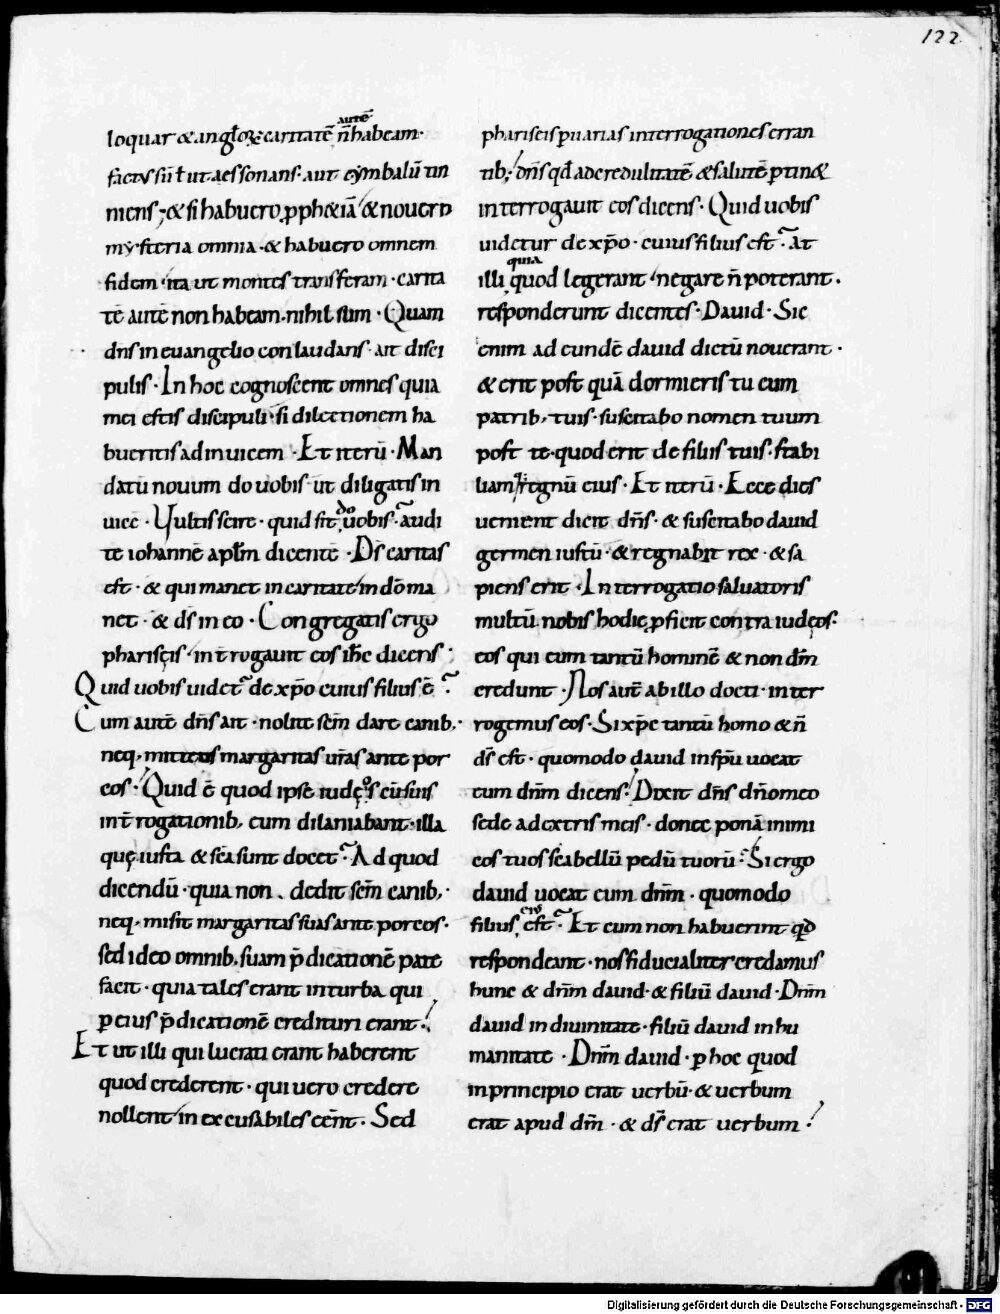 122
autē
loquar & angłoꝝ caritatē n̄ habeam·
factus sū ł ut aes sonans· aut cymbalū tin
niens; & si habuero pph&iā & nouero
mysteria omnia· & habuero omnem
fidem· ita ut montes transferam· carita
tē autē non habeam· nihil sum· Quam
dn̄s in euangelio conlaudans· ait disci
pulis· In hoc cognoscent omnes quia
mei estis discipuli· si dilectionem ha
bueritis adinuicem· Et iterū· Man
datū nouum do uobis· ut diligatis in
uicē· Uultis scire· quid sit do uobis· audi
te iohannē aplm̄ dicentē· Ds̄ caritas
est· & qui manet in caritate in dō ma
net· & ds̄ in eo· Congregatis ergo
pharisęis· int̄rogauit eos ihc̄ dicens·
Quid uobis uidet᷑ de xp̄o cuius filius ē
Cum autē dn̄s ait· nolite sc̄m dare canib;·
neq; mittatis margaritas ur̄as ante por
cos· Quid ē quod ipse iudęos eū suis
int̄rogationib; eum dilaniabant· illa
quę iusta & sc̄a sunt docet· Ad quod
dicendū· quia non dedit sc̄m canib;·
neq; misit margaritas suas ante porcos·
sed ideo omnib; suam p̄dicationē pate
facit· quia tales erant in turba qui
ꝑ eius p̄dicationē credituri erant·
Et ut illi qui lucrati erant haberent
quod crederent· qui uero credere
nollent inexcusabiles eēnt· Sed
phariseis ꝑuarias interrogationes erran
tib; dn̄s qđ ad credulitatē & salutē ꝑtin&
interrogauit eos dicens· Quid uobis
uidetur de xp̄o· cuius filius est· At
quia
illi quod legerant· negare n̄ poterant·
responderunt dicentes· Dauid· Sic
enim ad eundē dauid dictū nouerant·
& erit post quā dormieris tu cum
patrib; tuis· suscitabo nomen tuum
post te· quod erit de filiis tuis· stabi
liam regnū eius· Et iterū· Ecce dies
uenient dicit dn̄s· & suscitabo dauid
germen iustū· & regnabit rex· & sa
piens erit· Interrogatio saluatoris
multū nobis hodie ꝓficit contra iudęos·
eos qui eum tantū hominē & non dm̄
credunt· Nos autē ab illo docti· inter
rogemus eos· Si xp̄c tantū homo & n̄
ds̄ est· quomodo dauid in sp̄u uocat
eum dn̄m dicens· Dixit dn̄s dn̄o meo
sede a dextris meis· donec ponā inimi
cos tuos scabellū pedū tuorū· Si ergo
dauid uocat eum dn̄m· quomodo
eius
filius est· Et cum non habuerint qđ
respondeant· nos fiducialiter credamus
hunc & dn̄m dauid· & filiū dauid· Dn̄m
dauid in diuinitate· filiū dauid in hu
manitate· Dn̄m dauid· ꝑ hoc quod
in principio erat uerbū· & uerbum
erat apud dm̄· & ds̄ erat uerbum·
Digitalisierung gefördert durch die Deutsche Forschungsgemeinschaft - DFG